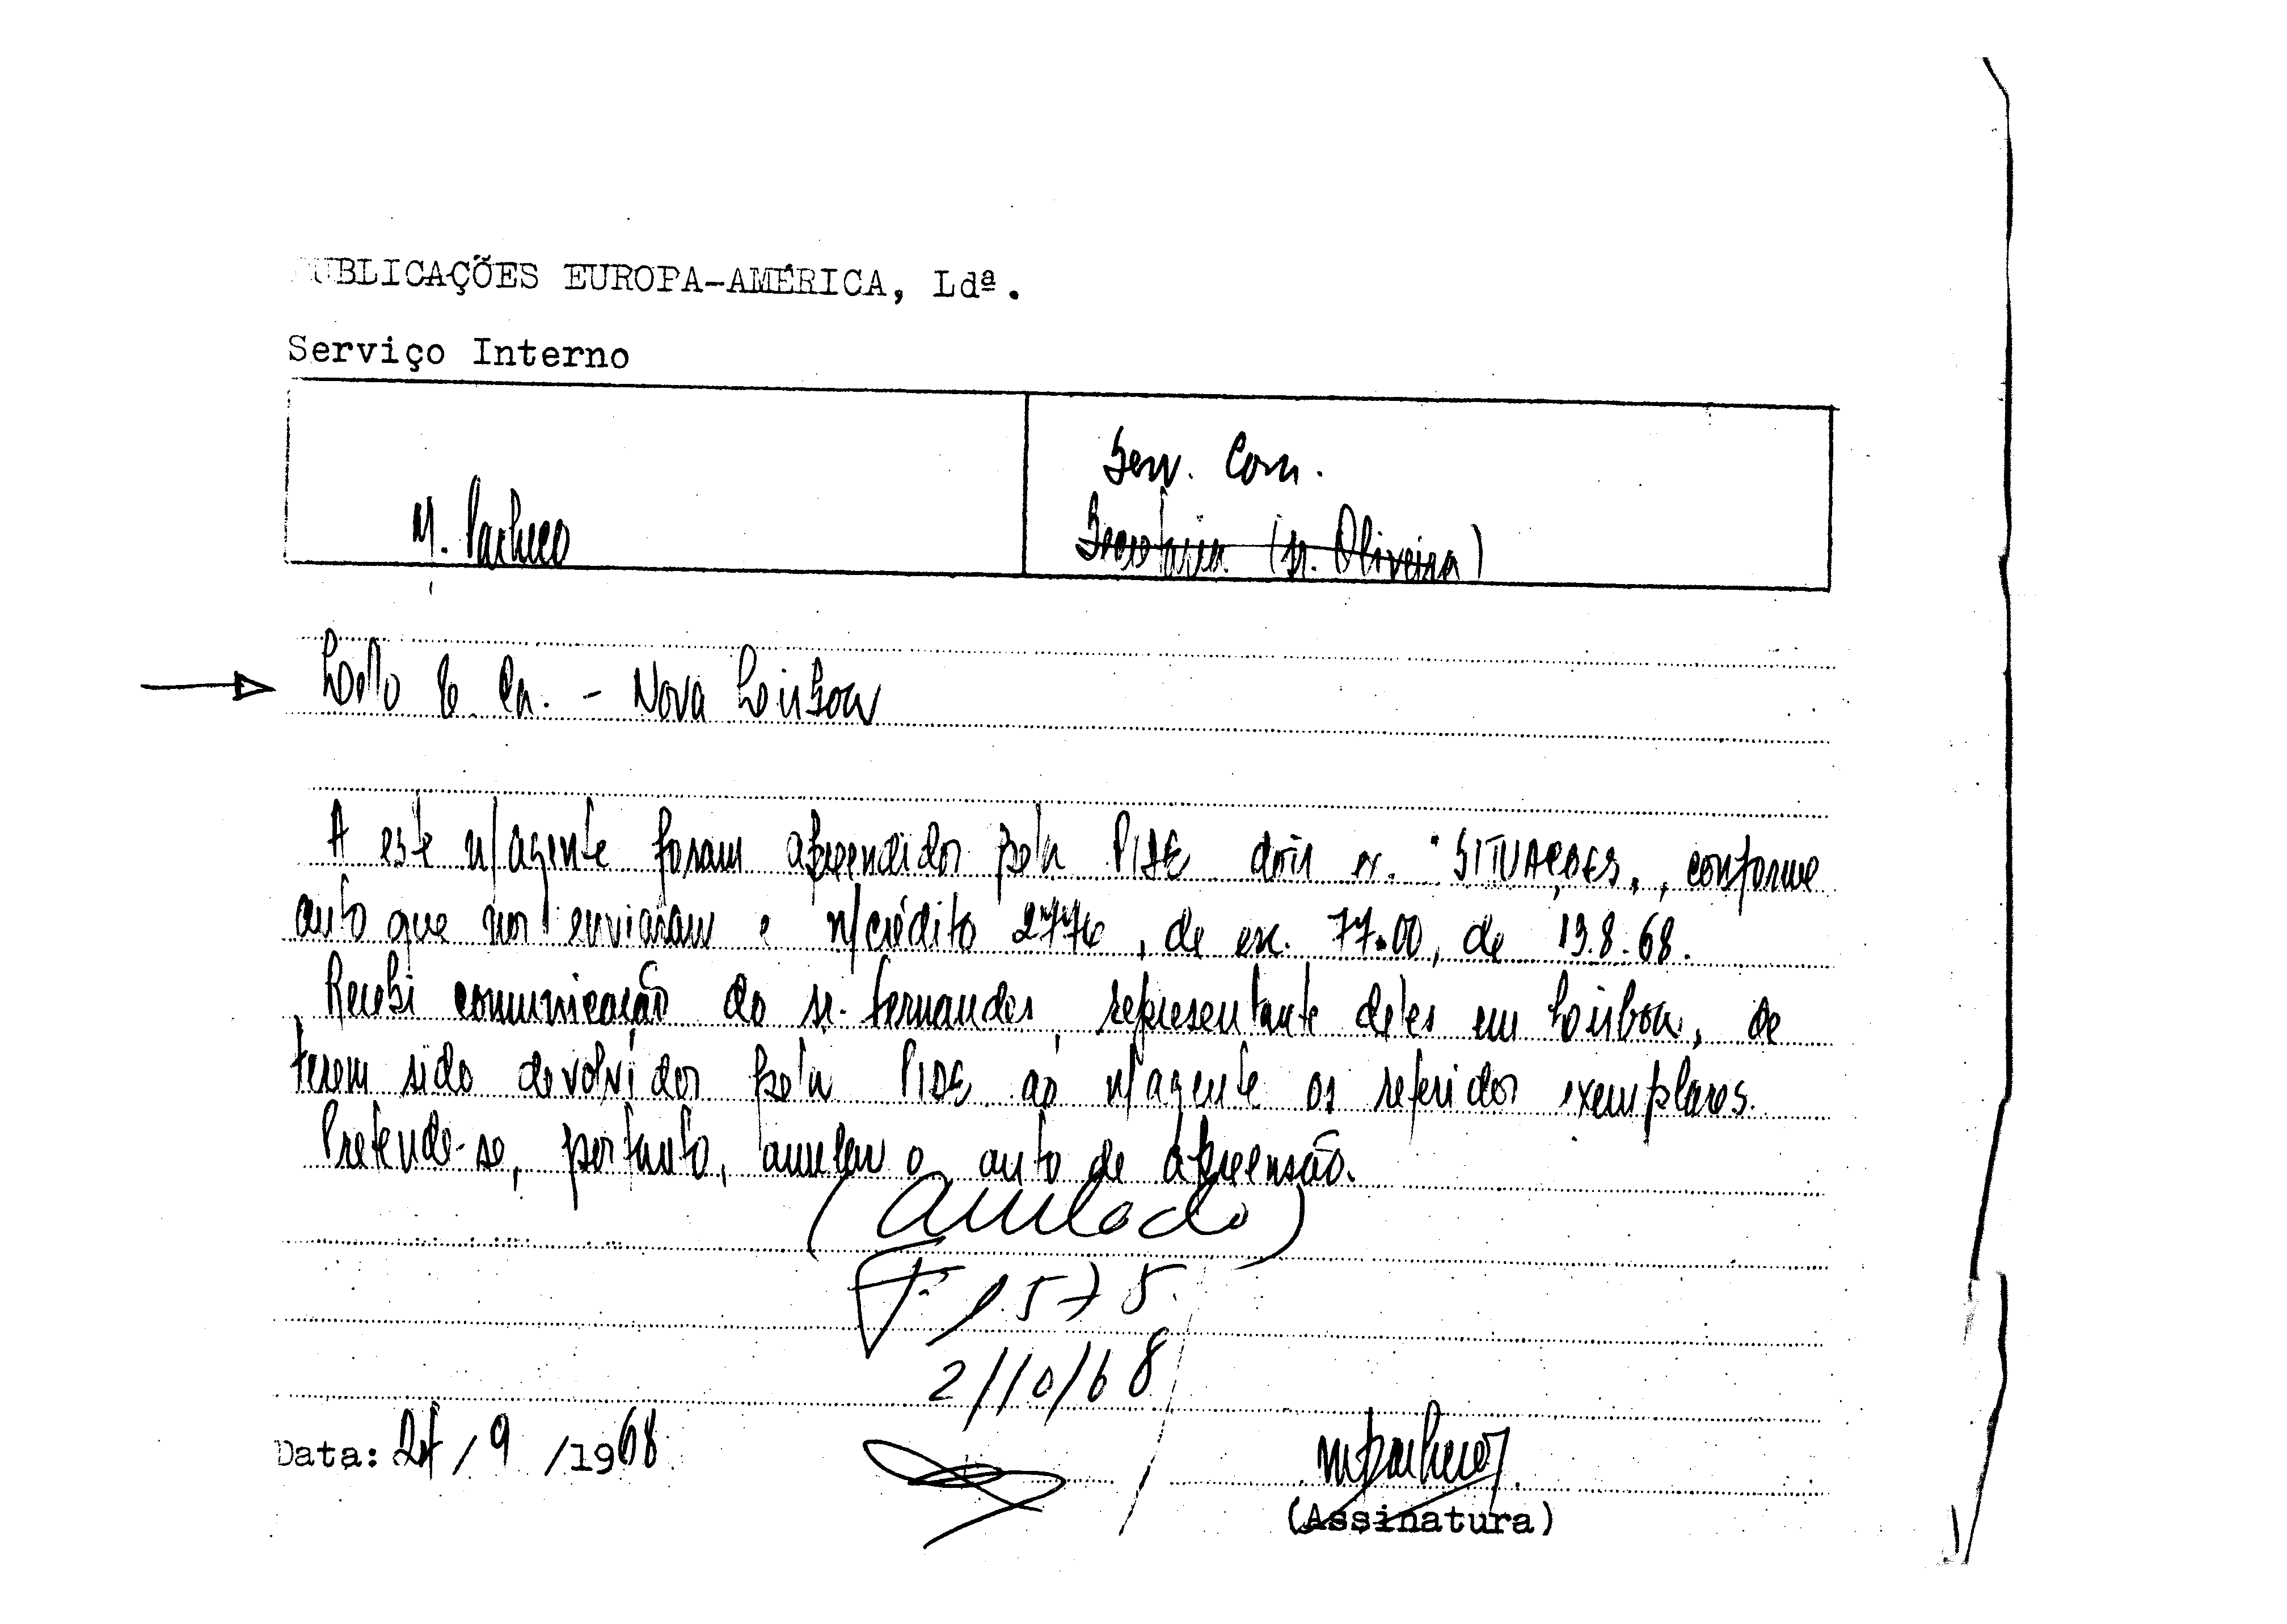 PUBLICAÇÕES EUROPA-AMÉRICA, Ldª.
Serviço Interno
Serv. Com.
M. Pacheco
Secretaria (sr. Oliveira)
Lello & Ca. - Nova Lisboa
A este n/agente foram apreendidos pela PIDE dois ex. "SITUAÇÕES", conforme
auto que nos enviaram e n/crédito 2776, de esc. 77.00, de 13.8.68.
Recebi comunicação do sr. Fernandes, representante deles em Lisboa, de
terem sido devolvidos pela PIDE ao n/agente os referidos exemplares.
Pretende-se, portanto, anular o auto de apreensão.
(Anulado)
F. 1575
2/10/68
Data: /9/1968
MPacheco
(Assinatura)